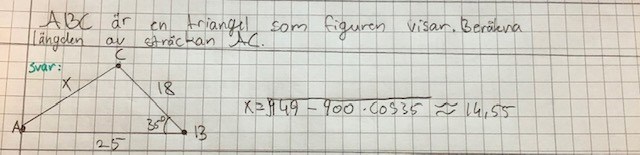 ABC är en triangel som figuren visar. Beräkna
längden av sträckan AC.
svar:
C
x
18
x=√949 - 900 · cos35 ≈ 14,55
A
35°
B
25